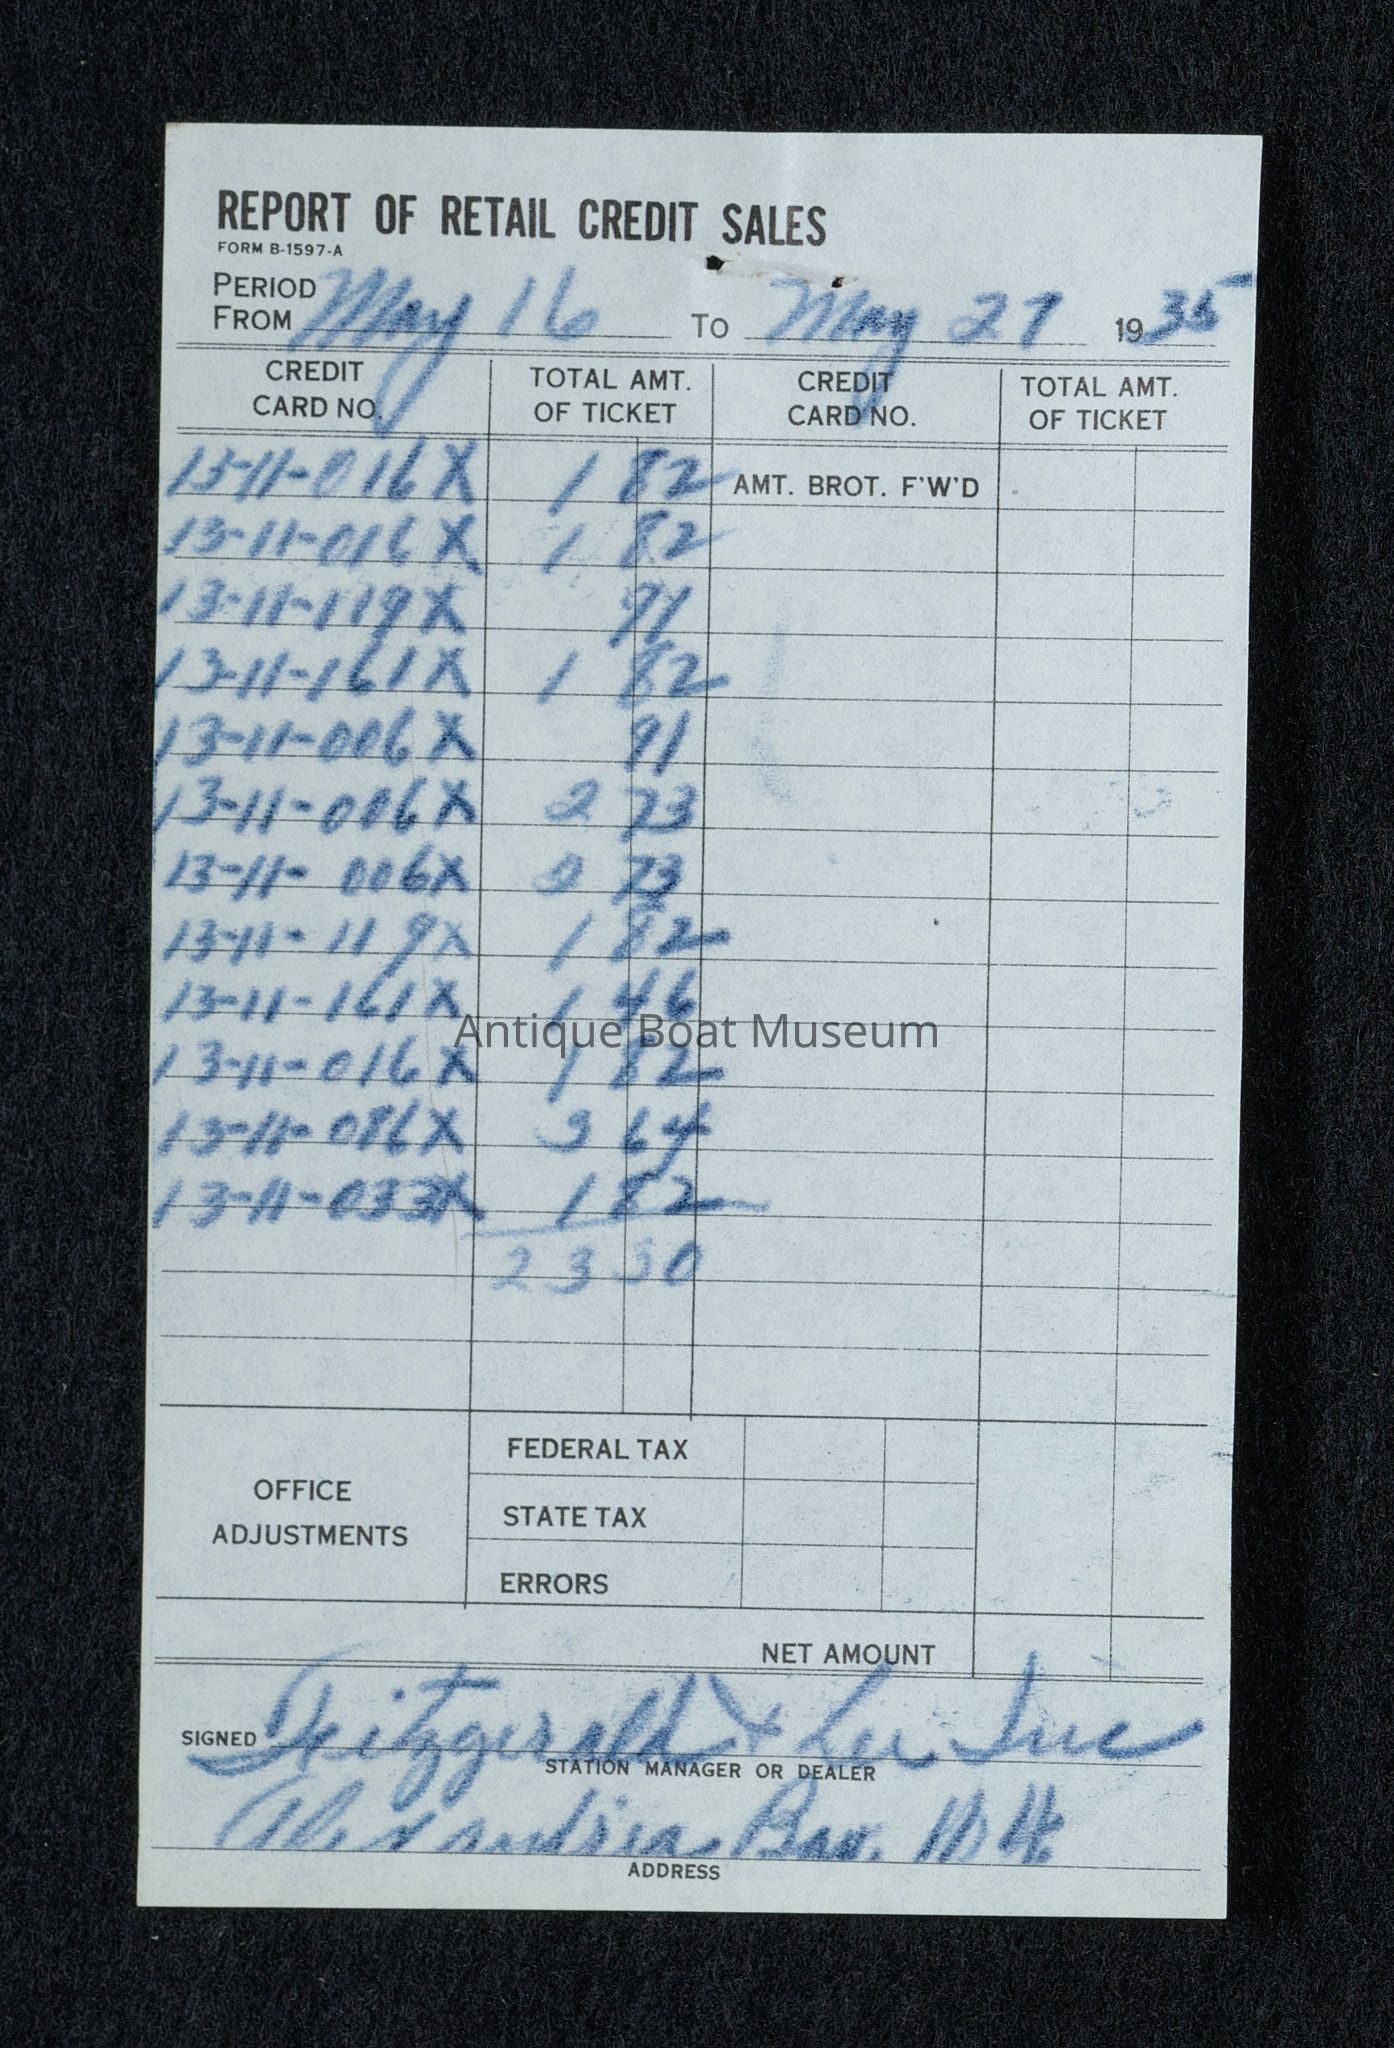 REPORT OF RETAIL CREDIT SALES
FORM B-1597-A
PERIOD FROM May 16 TO May 27 1935
CREDIT CARD NO. TOTAL AMT. OF TICKET CREDIT CARD NO. TOTAL AMT. OF TICKET
13-11-016X 1 82 AMT. BROT. F'W'D
13-11-016X 1 82
13-11-119X 91
13-11-161X 1 82
13-11-006X 91
13-11-006X 2 73
13-11-006X 2 73
13-11-119X 1 82
13-11-161X 1 46
Antique Boat Museum
13-11-016X 1 82
3 64
13-11-033X 1 82
23 30
FEDERAL TAX
OFFICE ADJUSTMENTS
STATE TAX
ERRORS
NET AMOUNT
SIGNED Fitzgerald & Lee Inc
STATION MANAGER OR DEALER
Alexandria Bay, N.Y.
ADDRESS